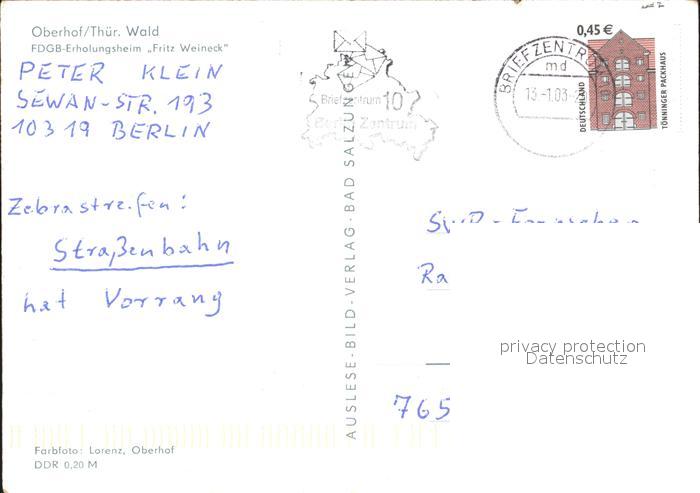 Oberhof/Thür. Wald
FDGB-Erholungsheim „Fritz Weineck"
PETER KLEIN
SEWAN-STR. 193
10319 BERLIN
Zebrastreifen:
Straßenbahn
hat Vorrang
Farbfoto: Lorenz, Oberhof
DDR 0,20 M
AUSLESE-BILD-VERLAG-BAD SALZUNGEN
Briefzentrum 10
Berlin Zentrum
BRIEFZENTRUM
md
13.-1.03
0,45 €
DEUTSCHLAND
TÖNNINGER PACKHAUS
Ra
765
privacy protection
Datenschutz